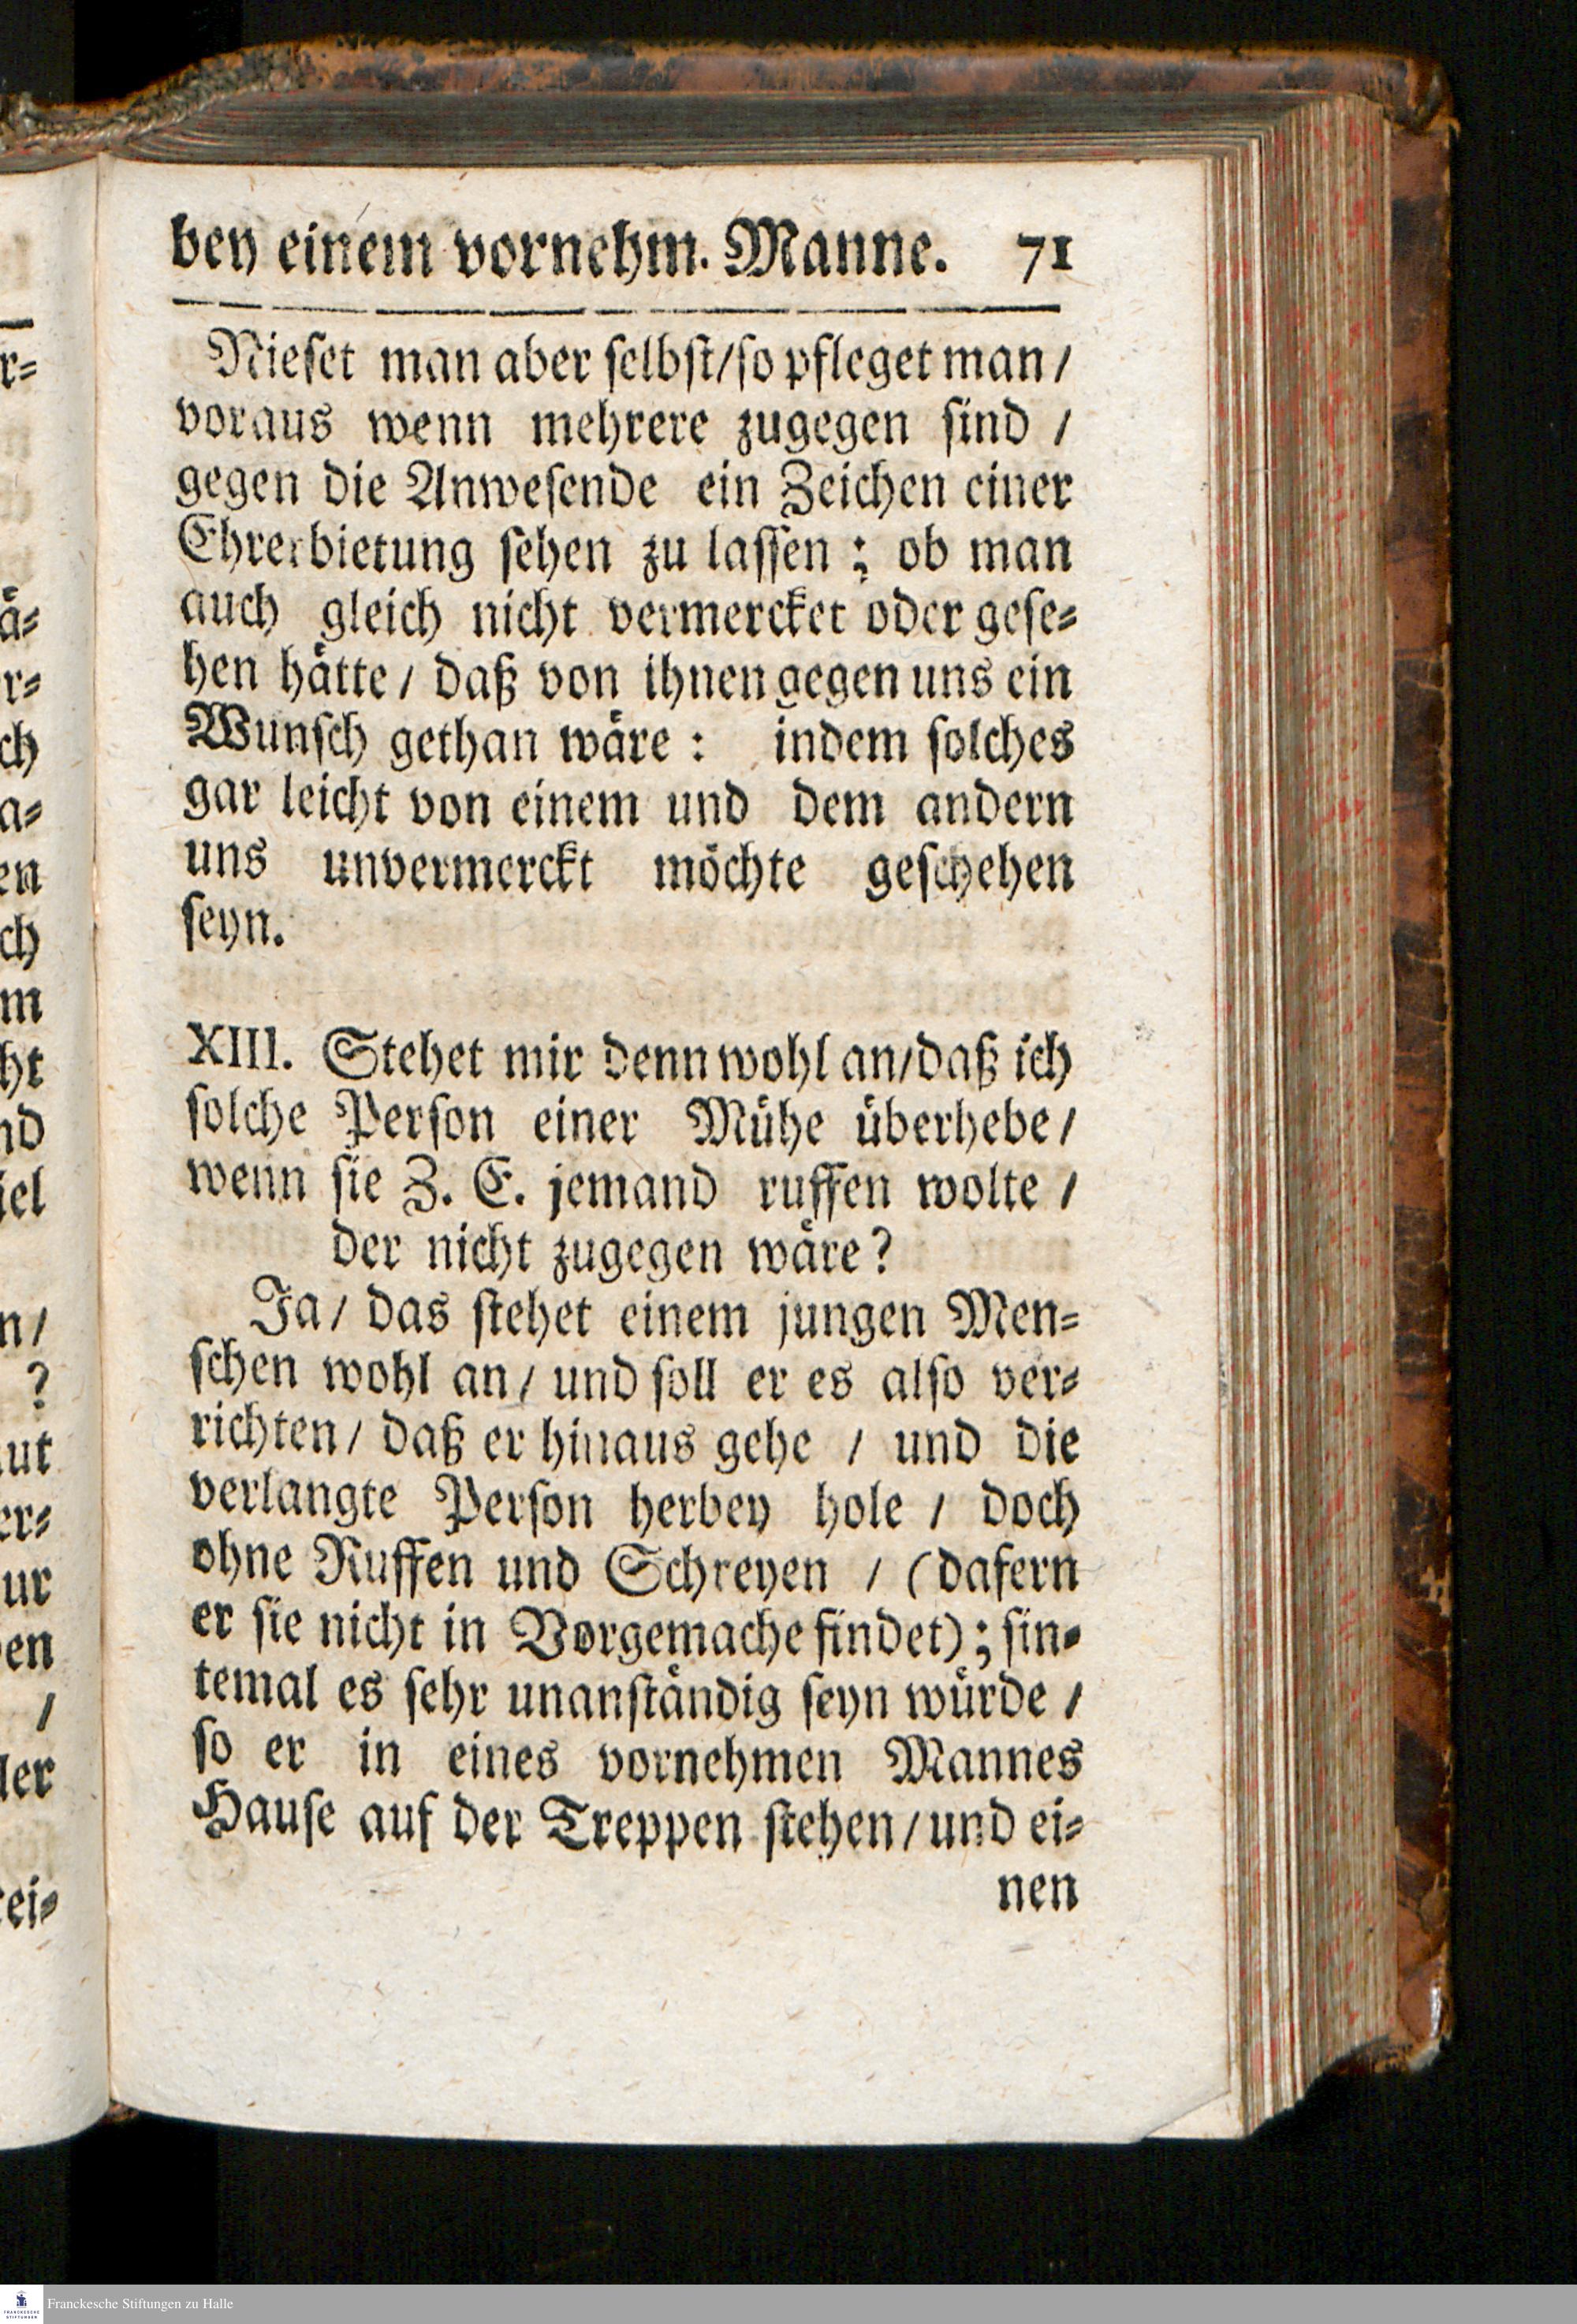 bey einem vornehm. Manne. 71
Nieset man aber selbst/so pfleget man/
voraus wenn mehrere zugegen sind /
gegen die Anwesende ein Zeichen einer
Ehrerbietung sehen zu lassen ; ob man
auch gleich nicht vermercket oder gese-
hen hätte / daß von ihnen gegen uns ein
Wunsch gethan wäre : indem solches
gar leicht von einem und dem andern
uns unvermerckt möchte geschehen
seyn.
XIII. Stehet mir denn wohl an/daß ich
solche Person einer Mühe überhebe /
wenn sie Z. E. jemand ruffen wolte /
der nicht zugegen wäre?
Ja / das stehet einem jungen Men-
schen wohl an / und soll er es also ver-
richten / daß er hinaus gehe / und die
verlangte Person herbey hole / doch
ohne Ruffen und Schreyen / (dafern
er sie nicht in Vorgemache findet) ; sin-
temal es sehr unanständig seyn würde /
so er in eines vornehmen Mannes
Hause auf der Treppen stehen / und ei-
nen
Franckesche Stiftungen zu Halle